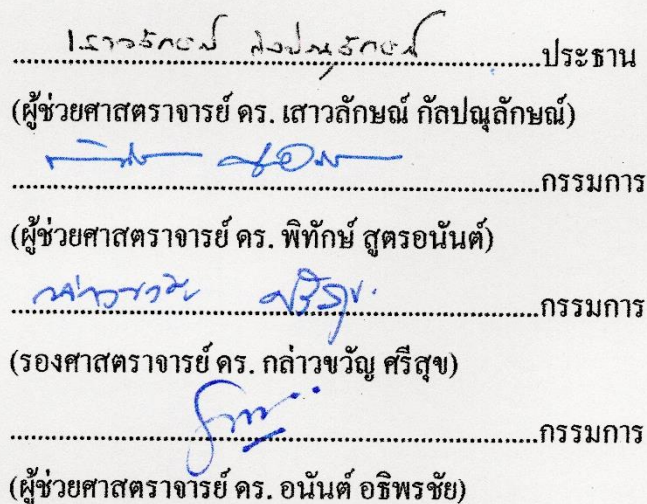 เสาวลักษณ์ กัลปณุลักษณ์ ประธาน
(ผู้ช่วยศาสตราจารย์ ดร. เสาวลักษณ์ กัลปณุลักษณ์)
กรรมการ
(ผู้ช่วยศาสตราจารย์ ดร. พิทักษ์ สูตรอนันต์)
กล่าวขวัญ ศรีสุข กรรมการ
(รองศาสตราจารย์ ดร. กล่าวขวัญ ศรีสุข)
กรรมการ
(ผู้ช่วยศาสตราจารย์ ดร. อนันต์ อธิพรชัย)